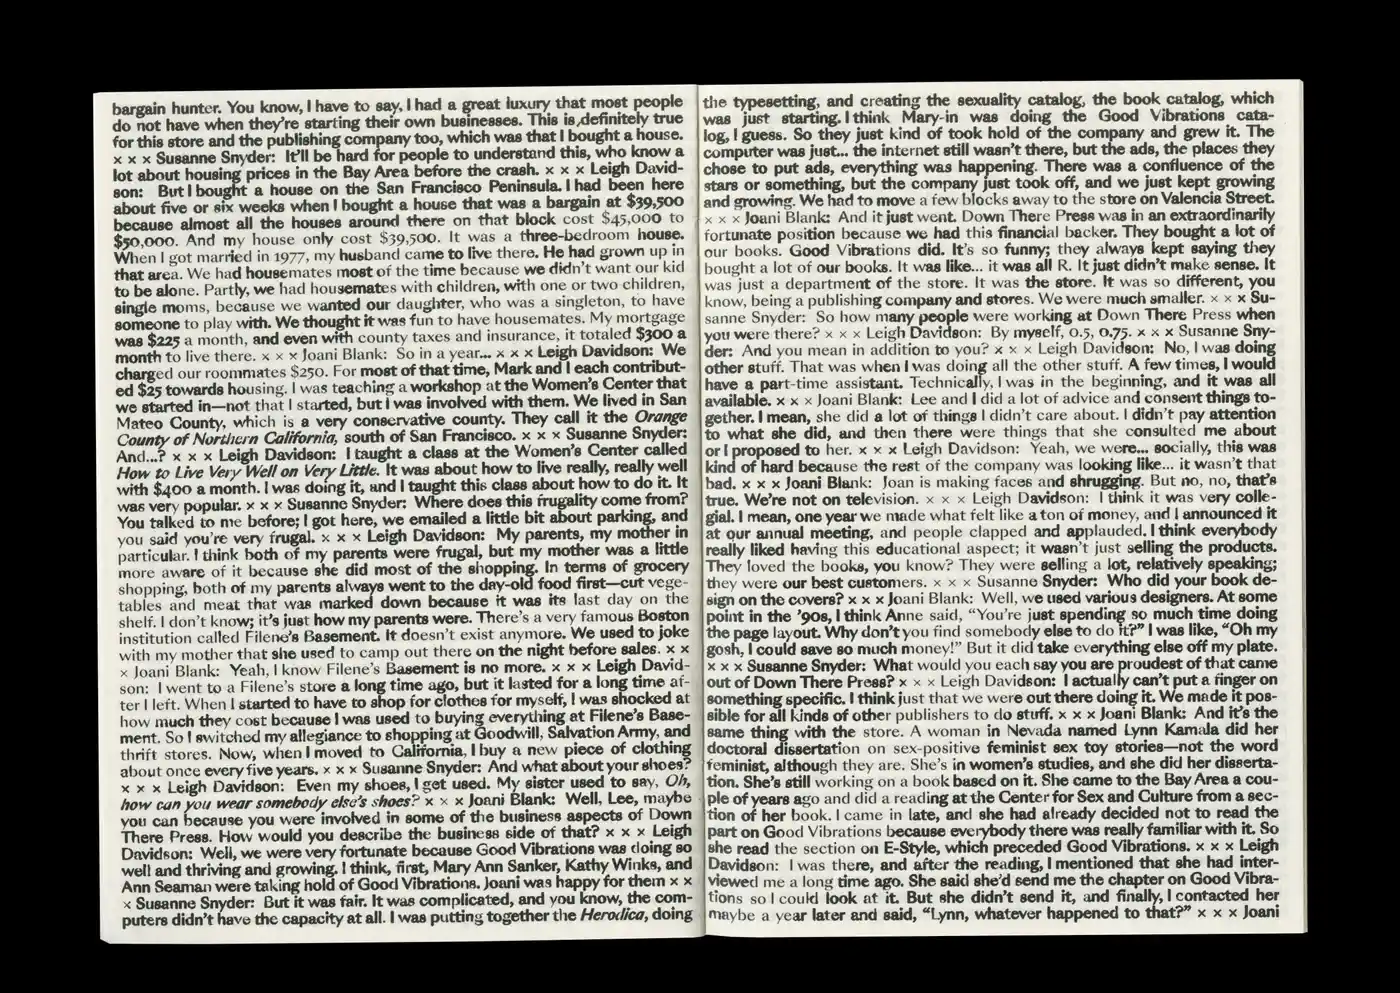 bargain hunter. You know, I have to say, I had a great luxury that most people
do not have when they're starting their own businesses. This is definitely true
for this store and the publishing company too, which was that I bought a house.
x x x Susanne Snyder: It'll be hard for people to understand this, who know a
lot about housing prices in the Bay Area before the crash. x x x Leigh David-
son: But I bought a house on the San Francisco Peninsula. I had been here
about five or six weeks when I bought a house that was a bargain at $39,500
because almost all the houses around there on that block cost $45,000 to
$50,000. And my house only cost $39,500. It was a three-bedroom house.
When I got married in 1977, my husband came to live there. He had grown up in
that area. We had housemates most of the time because we didn't want our kid
to be alone. Partly, we had housemates with children, with one or two children,
single moms, because we wanted our daughter, who was a singleton, to have
someone to play with. We thought it was fun to have housemates. My mortgage
was $225 a month, and even with county taxes and insurance, it totaled $300 a
month to live there. x x x Joani Blank: So in a year... x x x Leigh Davidson: We
charged our roommates $250. For most of that time, Mark and I each contribut-
ed $25 towards housing. I was teaching a workshop at the Women's Center that
we started in—not that I started, but I was involved with them. We lived in San
Mateo County, which is a very conservative county. They call it the Orange
County of Northern California, south of San Francisco. x x x Susanne Snyder:
And...? x x x Leigh Davidson: I taught a class at the Women's Center called
How to Live Very Well on Very Little. It was about how to live really, really well
with $400 a month. I was doing it, and I taught this class about how to do it. It
was very popular. x x x Susanne Snyder: Where does this frugality come from?
You talked to me before; I got here, we emailed a little bit about parking, and
you said you're very frugal. x x x Leigh Davidson: My parents, my mother in
particular. I think both of my parents were frugal, but my mother was a little
more aware of it because she did most of the shopping. In terms of grocery
shopping, both of my parents always went to the day-old food first—cut vege-
tables and meat that was marked down because it was its last day on the
shelf. I don't know; it's just how my parents were. There's a very famous Boston
institution called Filene's Basement. It doesn't exist anymore. We used to joke
with my mother that she used to camp out there on the night before sales. x x
x Joani Blank: Yeah, I know Filene's Basement is no more. x x x Leigh David-
son: I went to a Filene's store a long time ago, but it lasted for a long time af-
ter I left. When I started to have to shop for clothes for myself, I was shocked at
how much they cost because I was used to buying everything at Filene's Base-
ment. So I switched my allegiance to shopping at Goodwill, Salvation Army, and
thrift stores. Now, when I moved to California, I buy a new piece of clothing
about once every five years. x x x Susanne Snyder: And what about your shoes?
x x x Leigh Davidson: Even my shoes, I get used. My sister used to say, Oh,
how can you wear somebody else's shoes? x x x Joani Blank: Well, Lee, maybe
you can because you were involved in some of the business aspects of Down
There Press. How would you describe the business side of that? x x x Leigh
Davidson: Well, we were very fortunate because Good Vibrations was doing so
well and thriving and growing. I think, first, Mary Ann Sanker, Kathy Winks, and
Ann Seaman were taking hold of Good Vibrations. Joani was happy for them x x
x Susanne Snyder: But it was fair. It was complicated, and you know, the com-
puters didn't have the capacity at all. I was putting together the Herodica, doing
the typesetting, and creating the sexuality catalog, the book catalog, which
was just starting. I think Mary-in was doing the Good Vibrations cata-
log, I guess. So they just kind of took hold of the company and grew it. The
computer was just... the internet still wasn't there, but the ads, the places they
chose to put ads, everything was happening. There was a confluence of the
stars or something, but the company just took off, and we just kept growing
and growing. We had to move a few blocks away to the store on Valencia Street.
x x x Joani Blank: And it just went. Down There Press was in an extraordinarily
fortunate position because we had this financial backer. They bought a lot of
our books. Good Vibrations did. It's so funny; they always kept saying they
bought a lot of our books. It was like... it was all R. It just didn't make sense. It
was just a department of the store. It was the store. It was so different, you
know, being a publishing company and stores. We were much smaller. x x x Su-
sanne Snyder: So how many people were working at Down There Press when
you were there? x x x Leigh Davidson: By myself, 0.5, 0.75. x x x Susanne Sny-
der: And you mean in addition to you? x x x Leigh Davidson: No, I was doing
other stuff. That was when I was doing all the other stuff. A few times, I would
have a part-time assistant. Technically, I was in the beginning, and it was all
available. x x x Joani Blank: Lee and I did a lot of advice and consent things to-
gether. I mean, she did a lot of things I didn't care about. I didn't pay attention
to what she did, and then there were things that she consulted me about
or I proposed to her. x x x Leigh Davidson: Yeah, we were... socially, this was
kind of hard because the rest of the company was looking like... it wasn't that
bad. x x x Joani Blank: Joan is making faces and shrugging. But no, no, that's
true. We're not on television. x x x Leigh Davidson: I think it was very colle-
gial. I mean, one year we made what felt like a ton of money, and I announced it
at our annual meeting, and people clapped and applauded. I think everybody
really liked having this educational aspect; it wasn't just selling the products.
They loved the books, you know? They were selling a lot, relatively speaking;
they were our best customers. x x x Susanne Snyder: Who did your book de-
sign on the covers? x x x Joani Blank: Well, we used various designers. At some
point in the '90s, I think Anne said, "You're just spending so much time doing
the page layout. Why don't you find somebody else to do it?" I was like, "Oh my
gosh, I could save so much money!" But it did take everything else off my plate.
x x x Susanne Snyder: What would you each say you are proudest of that came
out of Down There Press? x x x Leigh Davidson: I actually can't put a finger on
something specific. I think just that we were out there doing it. We made it pos-
sible for all kinds of other publishers to do stuff. x x x Joani Blank: And it's the
same thing with the store. A woman in Nevada named Lynn Kamala did her
doctoral dissertation on sex-positive feminist sex toy stories—not the word
feminist, although they are. She's in women's studies, and she did her disserta-
tion. She's still working on a book based on it. She came to the Bay Area a cou-
ple of years ago and did a reading at the Center for Sex and Culture from a sec-
tion of her book. I came in late, and she had already decided not to read the
part on Good Vibrations because everybody there was really familiar with it. So
she read the section on E-Style, which preceded Good Vibrations. x x x Leigh
Davidson: I was there, and after the reading, I mentioned that she had inter-
viewed me a long time ago. She said she'd send me the chapter on Good Vibra-
tions so I could look at it. But she didn't send it, and finally, I contacted her
maybe a year later and said, "Lynn, whatever happened to that?" x x x Joani